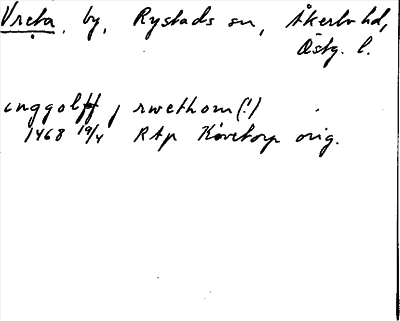 Vreta, by, Rystads sn, Åkerbo hd,
Östg. l.
inggolff j rwethom(!)
1468 19/4 RAp Kovetorp orig.